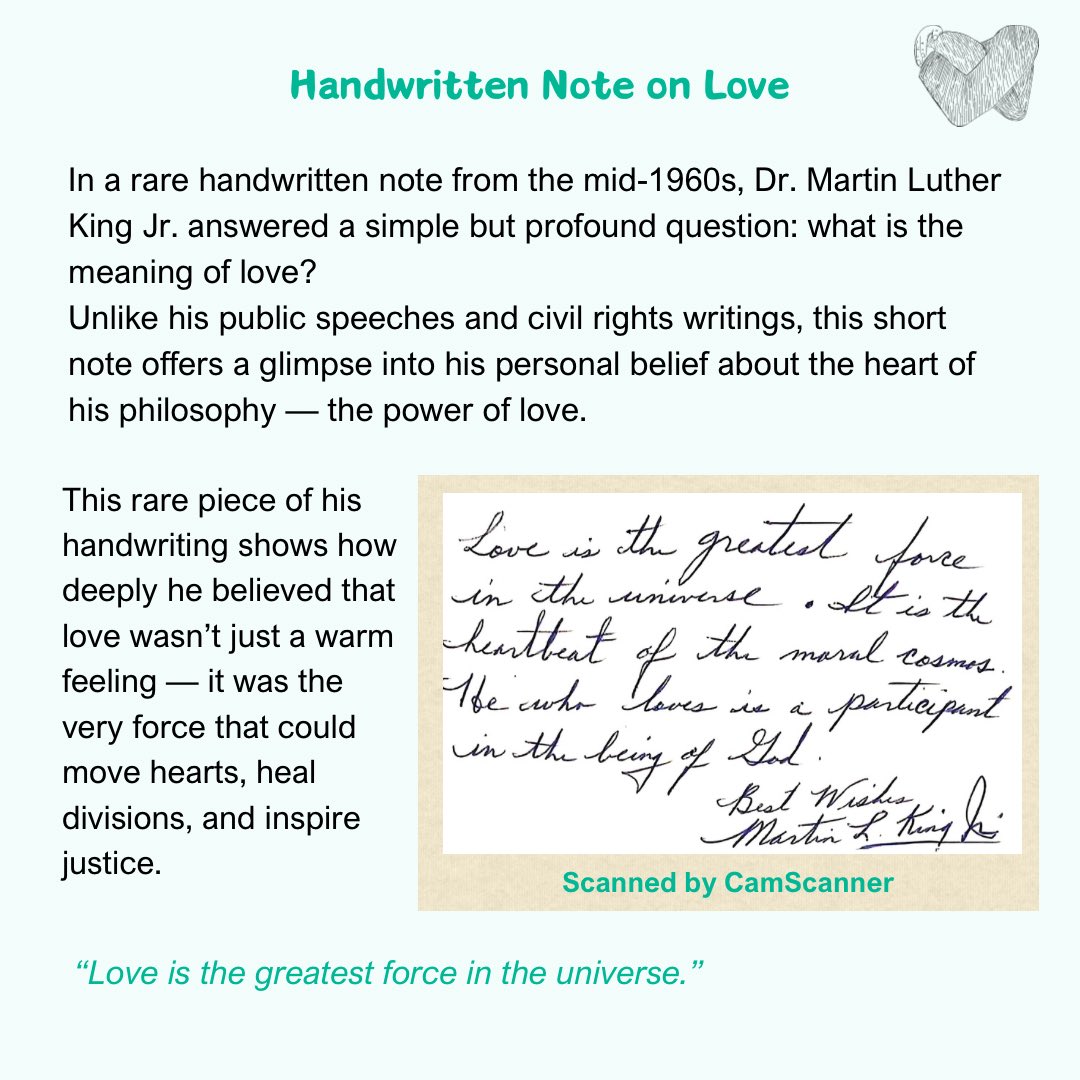 Handwritten Note on Love
In a rare handwritten note from the mid-1960s, Dr. Martin Luther
King Jr. answered a simple but profound question: what is the
meaning of love?
Unlike his public speeches and civil rights writings, this short
note offers a glimpse into his personal belief about the heart of
his philosophy — the power of love.
This rare piece of his
handwriting shows how
deeply he believed that
love wasn’t just a warm
feeling — it was the
very force that could
move hearts, heal
divisions, and inspire
justice.
Love is the greatest force
in the universe. It is the
heartbeat of the moral cosmos.
He who loves is a participant
in the being of God.
Best Wishes
Martin L. King Jr
Scanned by CamScanner
“Love is the greatest force in the universe.”